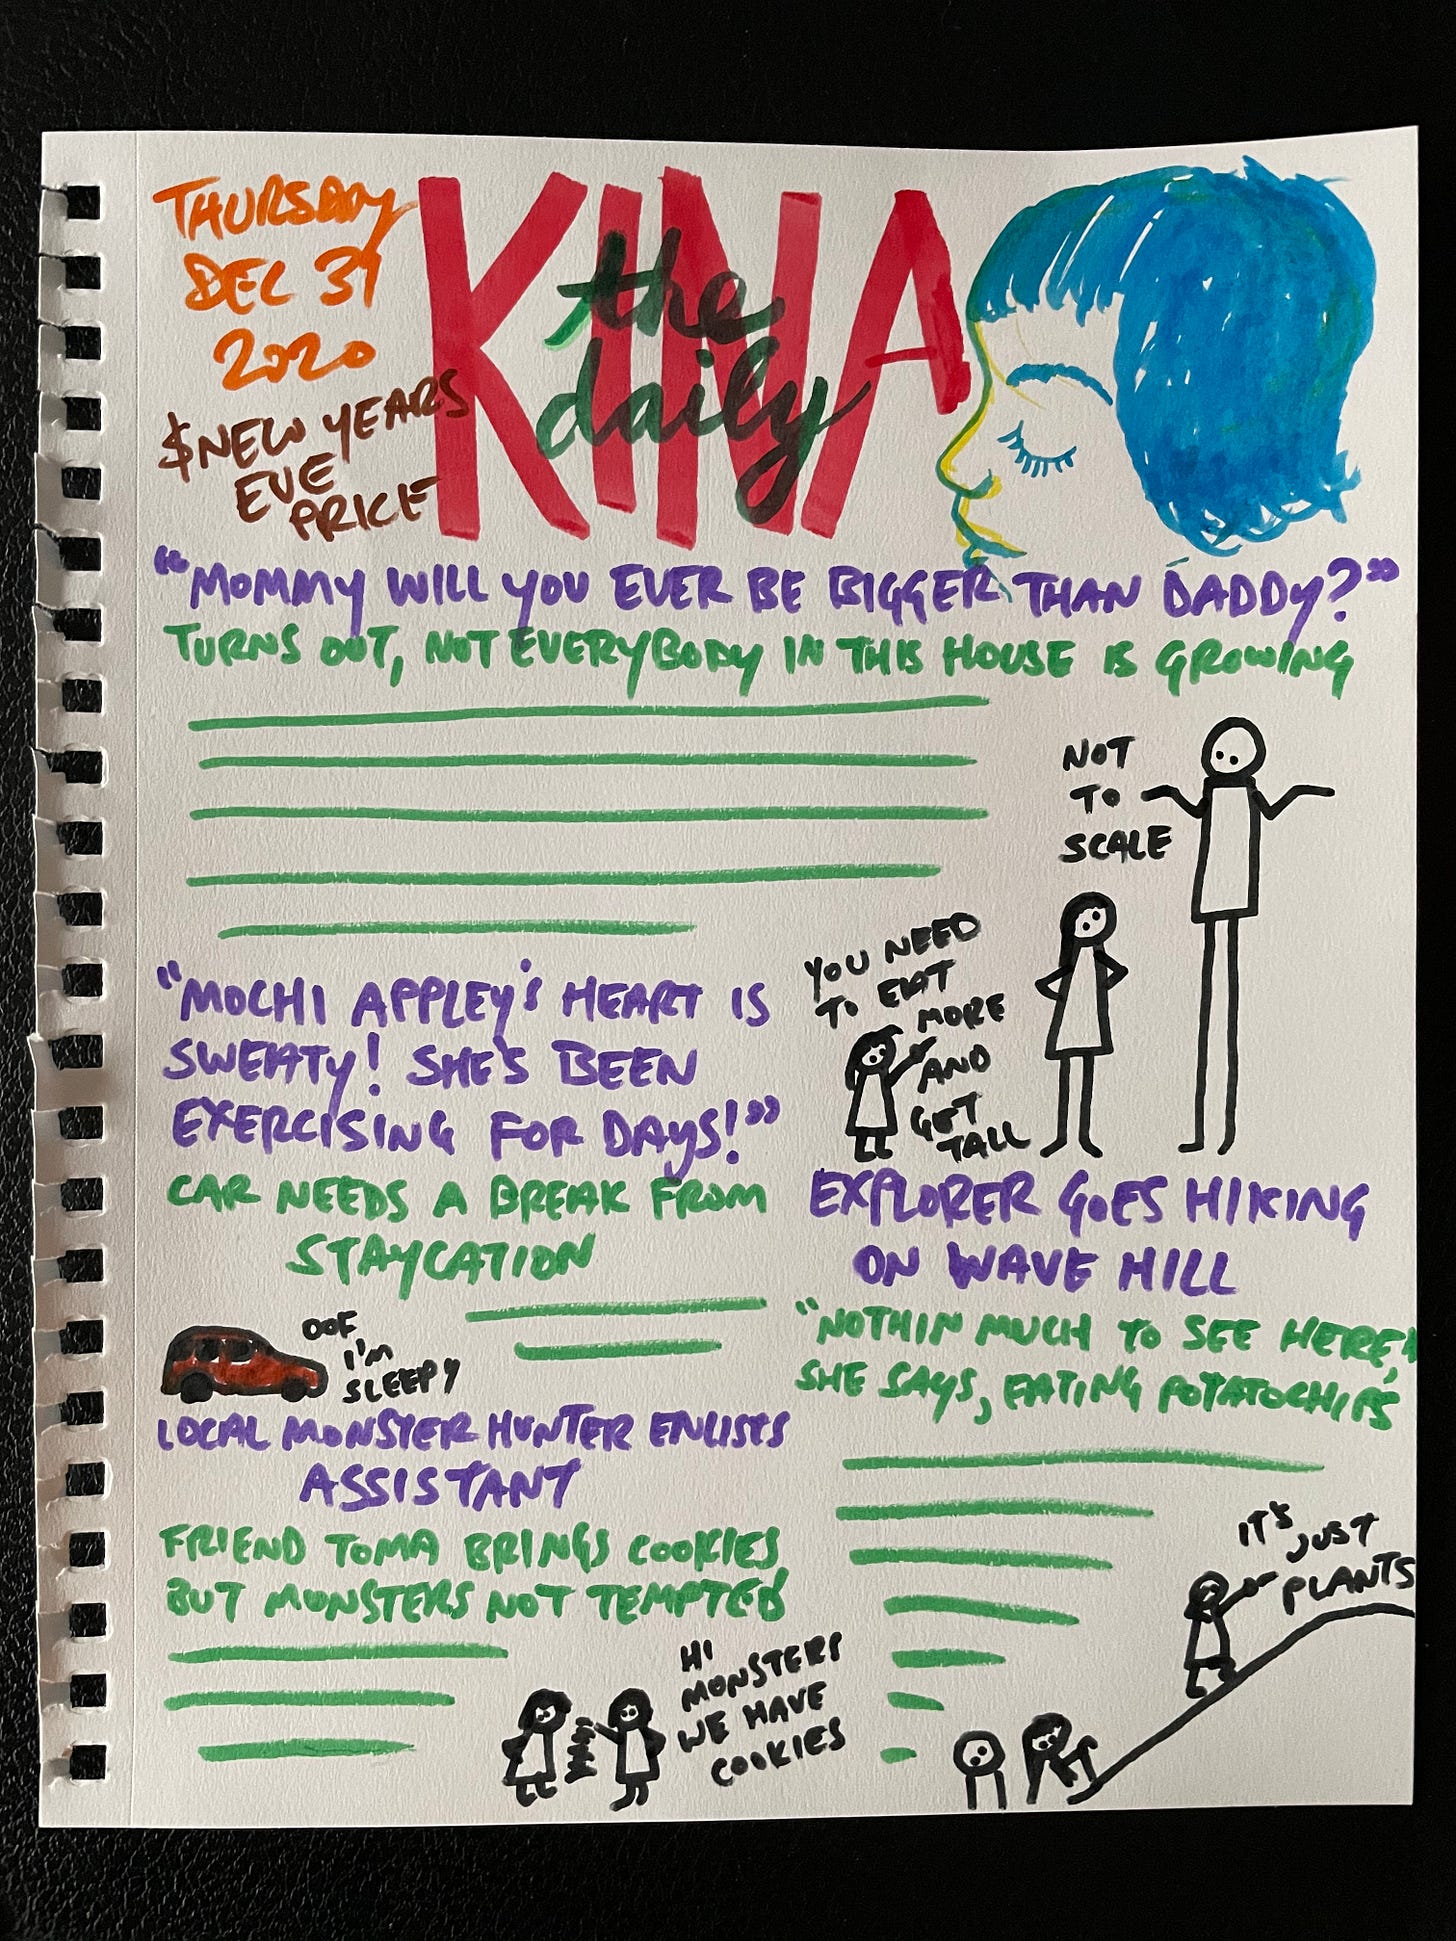 THURSDAY
DEC 31
2020
$NEW YEARS
EVE
PRICE
KINA
the
daily
"MOMMY WILL YOU EVER BE BIGGER THAN DADDY?"
TURNS OUT, NOT EVERYBODY IN THIS HOUSE IS GROWING
NOT
TO
SCALE
YOU NEED
TO EAT
MORE
AND
GET
TALL
"MOCHI APPLEY'S HEART IS
SWEATY! SHE'S BEEN
EXERCISING FOR DAYS!"
CAR NEEDS A BREAK FROM
STAYCATION
OOF
I'M
SLEEPY
LOCAL MONSTER HUNTER ENLISTS
ASSISTANT
FRIEND TOMA BRINGS COOKIES
BUT MONSTERS NOT TEMPTED
HI
MONSTERS
WE HAVE
COOKIES
EXPLORER GOES HIKING
ON WAVE HILL
"NOTHIN MUCH TO SEE HERE,"
SHE SAYS, EATING POTATOCHIPS
IT'S JUST
PLANTS